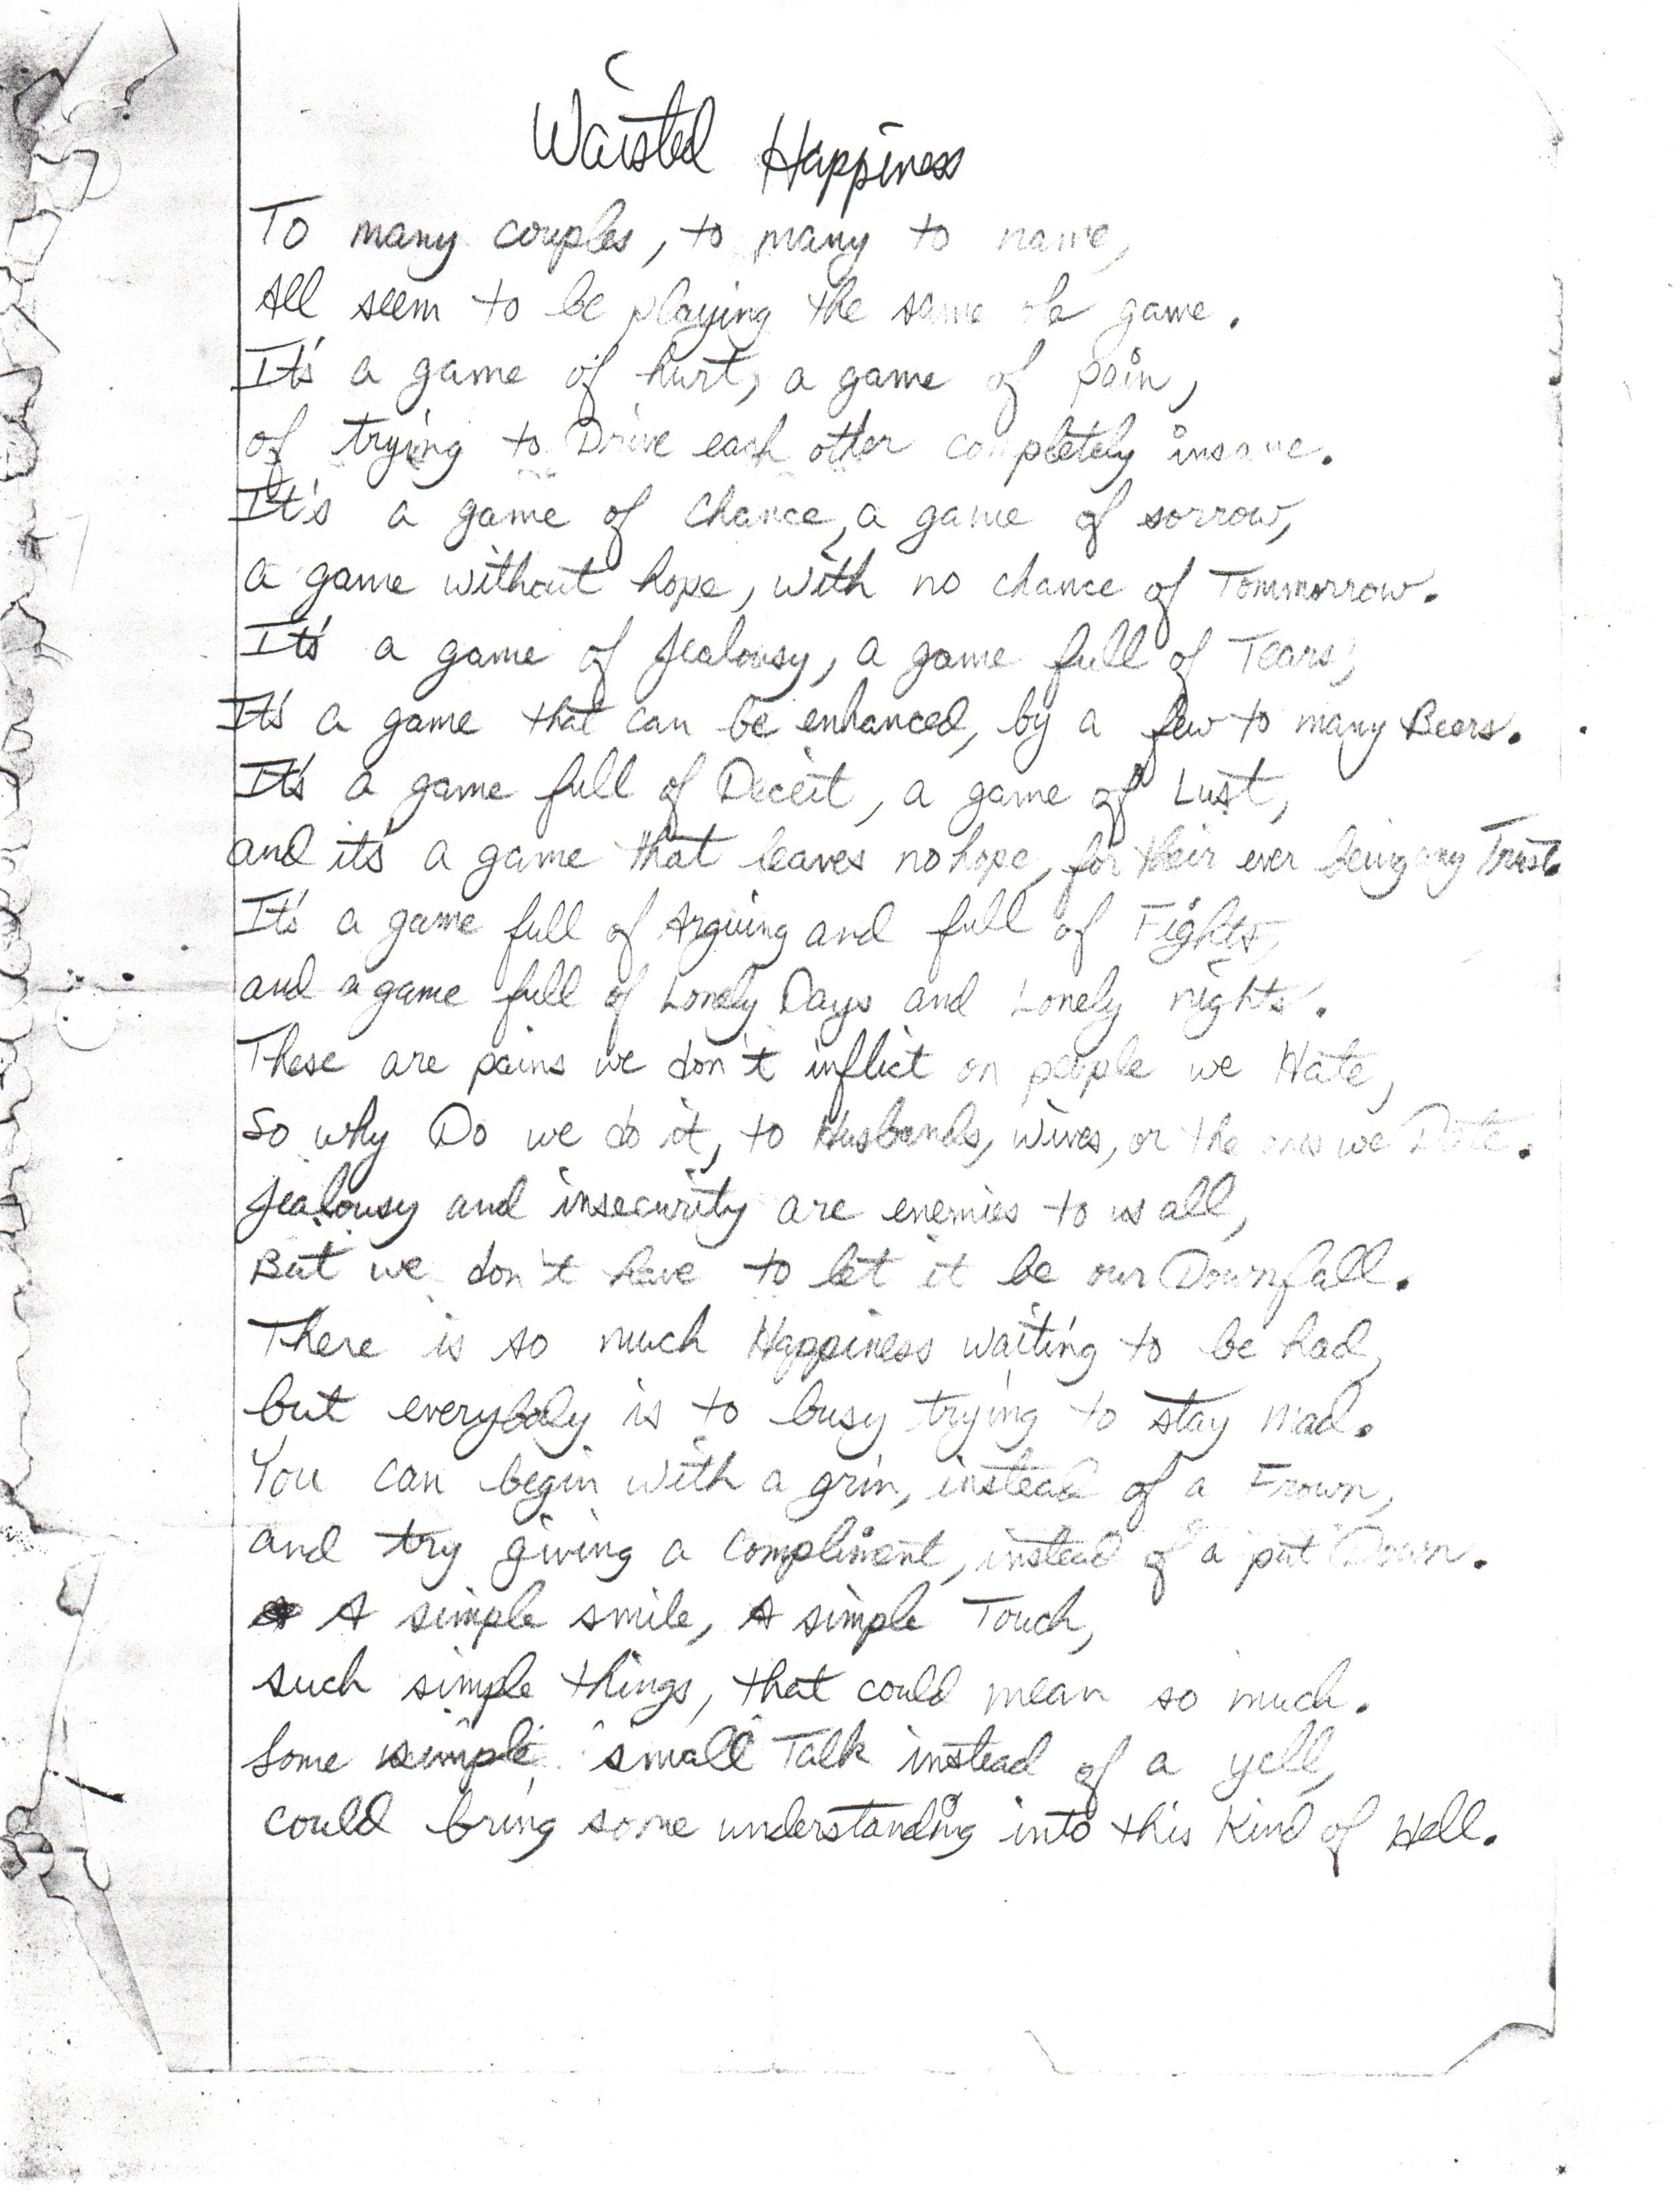 Waisted Happiness
To many couples, to many to name,
All seem to be playing the same ole game.
It's a game of hurt, a game of pain,
of trying to Drive each other completely insane.
It's a game of chance, a game of sorrow,
a game without hope, with no chance of Tommorrow.
It's a game of Jealousy, a game full of Tears,
It's a game that can be enhanced, by a few to many Beers.
It's a game full of Deceit, a game of Lust,
and it's a game that leaves no hope, for their ever being any Trust.
It's a game full of Arguing and full of Fights,
and a game full of Lonely Days and Lonely nights.
These are pains we don't inflict on people we Hate,
So why Do we do it, to Husbands, wives, or the ones we Date.
Jealousy and insecurity are enemies to us all,
But we don't have to let it be our Downfall.
There is so much Happiness waiting to be had,
but everybody is to busy trying to stay mad.
You can begin with a grin, instead of a Frown,
and try giving a compliment, instead of a "put Down.
A simple smile, A simple Touch,
such simple things, that could mean so much.
Some simple small Talk instead of a yell,
could bring some understanding into this Kind of Hell.